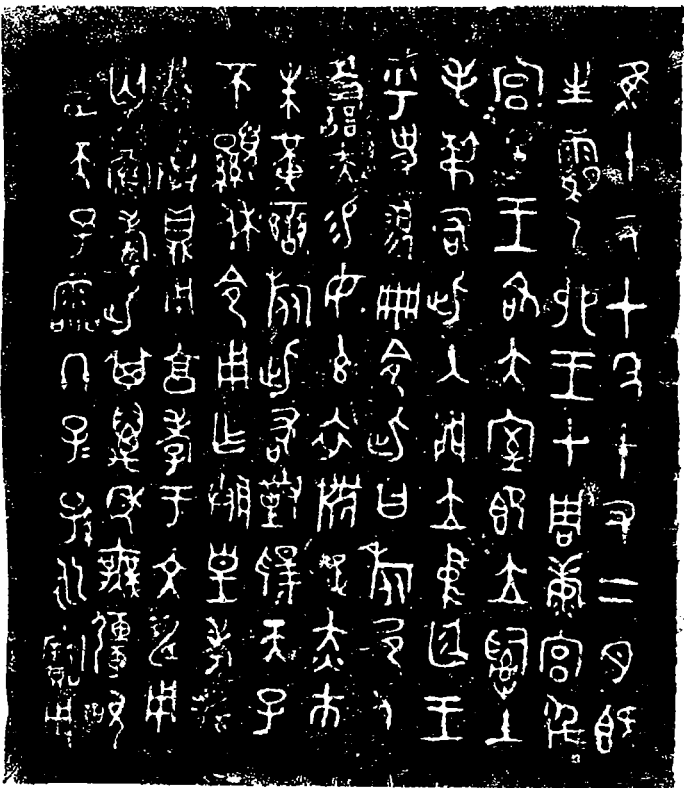 隹十又七年十又二月既
生霸乙卯王才周康宮徲
宮旦王各大室即立𤔲土
毛弔右此入門立中廷王
乎史翏冊令此曰旅邑人
善夫易女玄衣黹屯赤巿
朱黃䜌旂此敢對揚天子
不顯休令用乍朕皇考癸
公尊鼎用享孝于文申用
匄眉壽此其萬年無彊畯
臣天子霝冬子＝孫＝永寶用